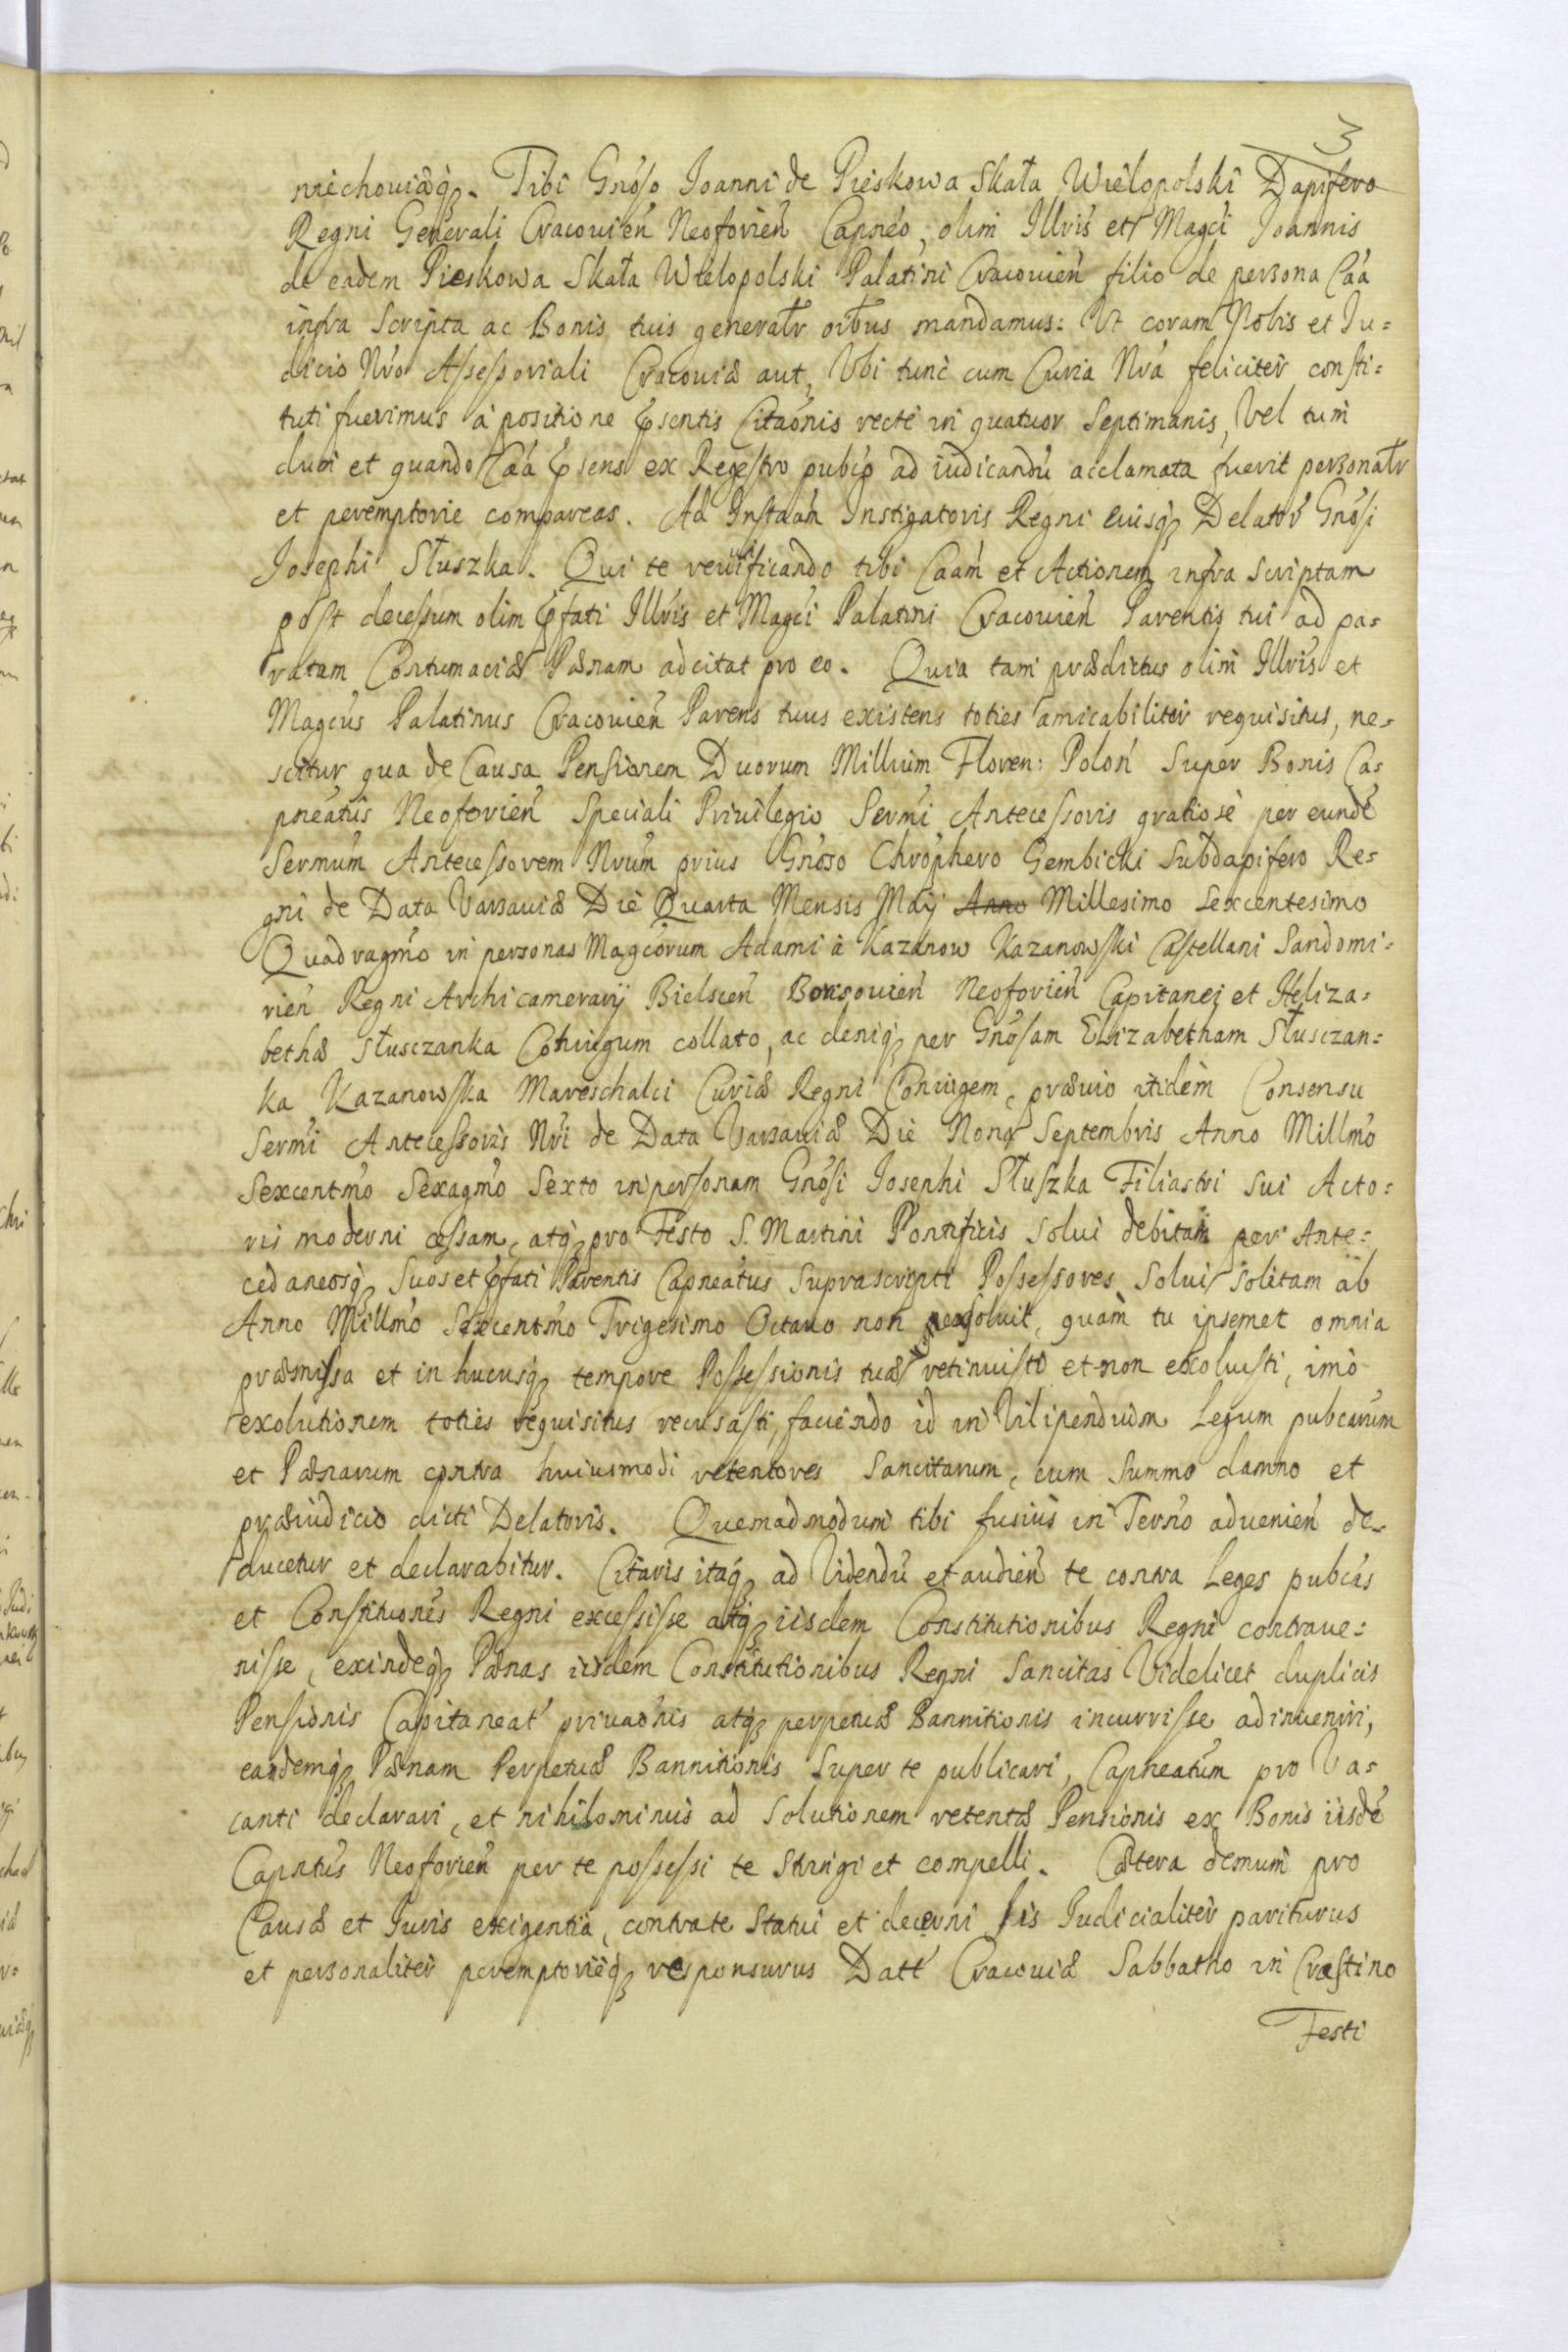 3
niechouiæq́ꝫ. Tibi Gnóso Joanni de Pieskowa Skała Wielopolski Dapifero
Regni Generali Cracouień Neoforień Capnéo, olim Illvis et Magci Joannis
de eadem Pieskowa Skała Wielopolski Palatini Cracouień filio de persona Cáá
infra Scripta ac Bonis tuis generalr oibus mandamus: Vt coram Nobis et Ju=
dicio Nró Assessoriali Cracouiæ aut, Vbi tunc cum Curia Nrá feliciter consti=
tuti fuerimus à positione pńsentis Citaónis recté in quatuor Septimanis, Vel tum
dum et quando Cáá pńsens ex Regestro pubco ad iudicandú acclamata fuerit personalr
et peremptorie compareas. Ad Instaám Instigatoris Regni eiusq́ꝫ Delator Gnósi
Josephi Słuszka. Qui te reuiuificando tibi Caám et Actionem infra scriptam
post decessum olim pfati Illvis et Magci Palatini Cracouień Parentis tui ad pa=
ratam Contumaciæ Pænam adcitat pro eo. Quia tam prædictus olim Illvis et
Magcus Palatinus Cracouień Parens tuus existens toties amicabiliter requisitus, ne=
scitur qua de Causa Pensionem Duorum Millium Floren: Poloń Super Bonis Ca=
pneatus Neoforień Speciali Priuilegio Sermi Antecessoris gratiose per eundé
Sermum Antecessorem Nrum prius Gnóso Chrophero Gembicki Subdapifero Re=
gni de Data Varsauiæ Die Quarta Mensis Maij Anno Millesimo Sexcentesimo
Quadragmo in personas Magcorum Adami à Kazanow Kazanowski Castellani Sandomi=
rień Regni Archicamerarij Bielsceń Borisouień Neoforień Capitanei et Heliza=
bethæ Słusczanka Coniugum collato, ac deniq́ꝫ per Gnósam Elizabetham Słusczan=
ka Kazanowska Mareschalci Curiæ Regni Coniugem, præuio itidem Consensu
Sermi Antecessoris Nri de Data Varsauiæ Die Nona Septembris Anno Millmo
Sexcentmo Sexagmo Sexto in personam Gnósi Josephi Słuszka Filiastri sui Acto=
ris moderni cessam, atq́ꝫ pro Festo S. Martini Pontificis solui debitam per Ante=
cedaneosq́ꝫ Suos et pfati Parentis Capneatus Suprascripti Possessores Solui solitam ab
Anno Millmo Sexcentmo Trigesimo Octauo non persoluit, quam tu ipsemet omnia
præmissa et in hucusq́ꝫ tempore Possessionis tuæ retinuisti et non exoluisti, imò
exolutionem toties requisitus recusasti, faciendo id in Vilipendium Legum pubcarum
et Pænarum contra huiusmodi retentores Sancitarum, cum Summo damno et
præiudicio dicti Delatoris. Quemadmodum tibi fusius in Terno aduenień de=
ducetur et declarabitur. Citaris itaq́ꝫ ad Videndú et audień te contra Leges pubcas
et Constitutiones Regni excessisse atq́ꝫ iisdem Constitutionibus Regni contraue=
nisse, exindeq́ꝫ Pænas iisdem Constitutionibus Regni Sancitas Videlicet duplicis
Pensionis Capitaneat priuaónis atq́ꝫ perpetuæ Bannitionis incurrisse adinueniri,
eandemq́ꝫ Pænam Perpetuæ Bannitionis Super te publicari, Capneatum pro Va=
canti declarari, et nihilominus ad Solutionem retentæ Pensionis ex Bonis iisdé
Capntus Neoforień per te possessi te Stringi et compelli. Cætera demum pro
Causæ et Juris exigentia, contra te Statui et decerni sis Judicialiter pariturus
et personaliter peremptorieq́ꝫ responsurus Datt Cracouiæ Sabbatho in Crastino
Festi